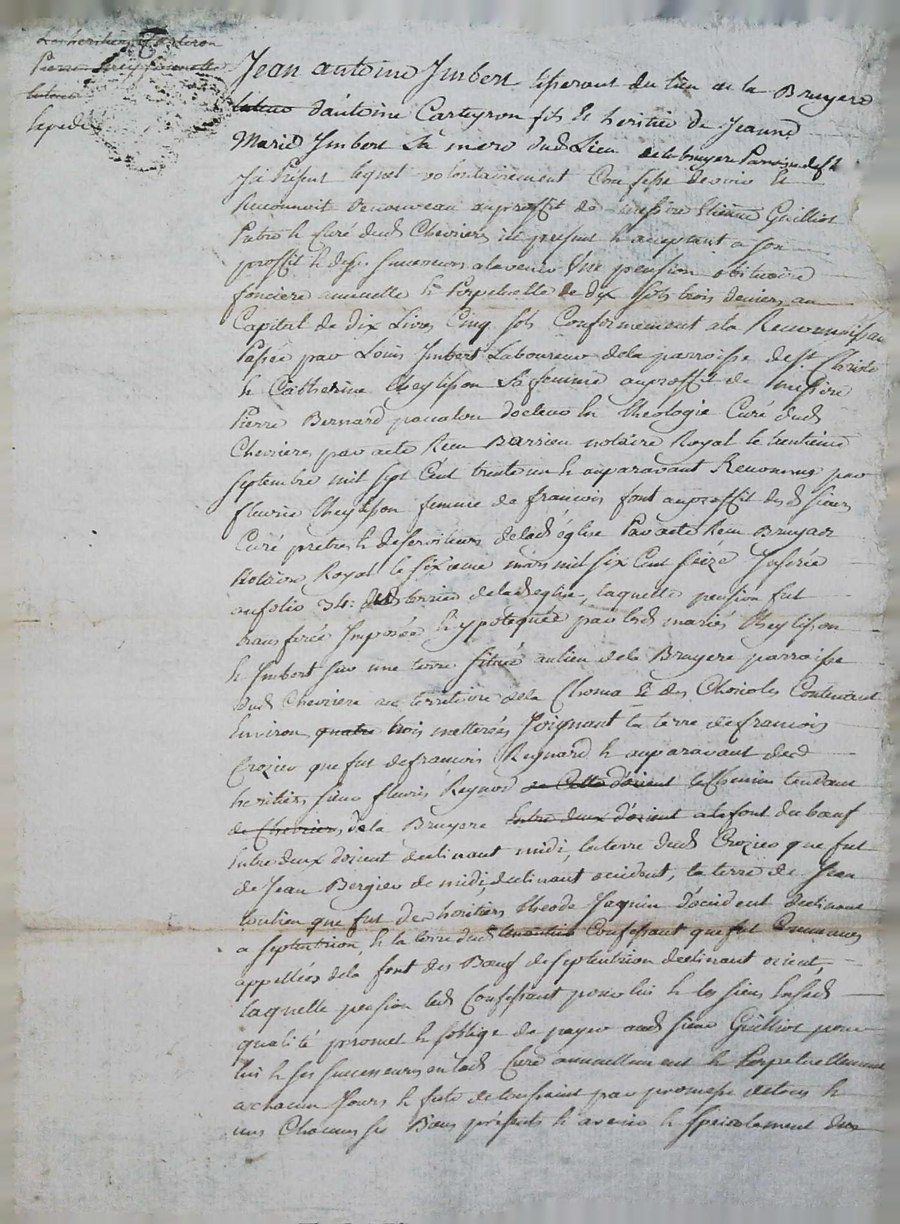 Les heritiers
Pierre
Jean antoine Jmbert du lieu de la Bruyere
d'antoine Carteyron fils & heritier de Jeanne
Marie Jmbert sa mere dud. Lieu de la bruyere
lequel volontairement Confesse devoir &
Reconnoit de nouveau au proffit de messire Etienne Guilliot
Pretre & Curé dud. Chevrieres icy present & acceptant a son
proffit & de ses successeurs a lavenir Une pension obituaire
fonciere annuelle & Perpetuelle de dix sols trois deniers au
Capital de dix Livres Cinq sols Conformement a la Reconnoissan
Passée par Louis Jmbert Laboureur de la parroisse de St. Christo
& Catherine Cheylisson sa femme au proffit de messire
Pierre Bernard docteur en theologie Curé dud.
Chevrieres par acte Receu Barriou notaire Royal le trentieme
septembre mil sept Cent trente un & auparavant Reconnue par
fleurie Cheylisson femme de francois font au proffit desd. sieurs
Curé pretres & desserviteurs de lad. église Par acte Receu Bruyas
Notaire Royal le sixieme mars mil six Cent seize Jnserée
au folio 34: terrier de lad. eglise, laquelle pension fut
transferée Jmposée & ypotequée par lesd. mariés Cheylisson
& Jmbert sur une terre située au lieu de la Bruyere parroisse
dud. Chevriere au territoire de la Choma & des Chorioles Contenant
Environ quatre trois metterées Joignant la terre de francois
Crozier que fut de francois Reynard & auparavant des
heritiers sieur fleuris Reynod le Chemin tendant
de Chevrieres, de la Bruyere Entre deux d'orient a la font du bœuf
Entre deux d'orient declinant midi, la terre dud. Crozier que fut
de Jean Bergier de midi, declinant occident, la terre de Jean
que fut des heritiers theode Jaquin d'occident declinant
a septentrion, & la terre dud. Confessant que fut Communes
appellées de la font des Bœuf de septentrion declinant orient,
laquelle pension led. Confessant pour lui & les siens
qualité promet & s'oblige de payer aud. sieur Guilliot pour
lui & ses successeurs en lad. Cure annuellement & Perpetuellement
a chacun Jours & feste de toussaint par promesse de tous &
uns Chacuns ses Biens présents & avenir & specialement